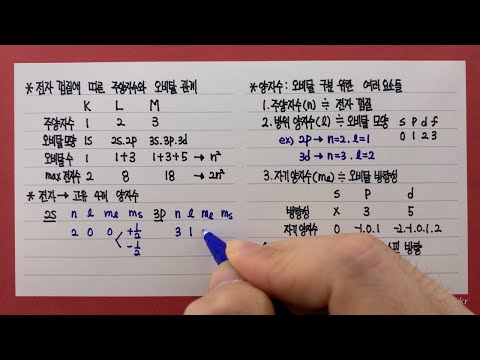 * 전자 껍질에 따른 주양자수와 오비탈 관계
K L M
주양자수 1 2 3
오비탈모양 1S 2S.2P 3S.3P.3d
오비탈수 1 1+3 1+3+5 → n²
max 전자수 2 8 18 → 2n²
* 전자 → 고유 4개 양자수
2S n l mℓ ms 3P n l mℓ ms
2 0 0 < +1/2 3 1
-1/2
* 양자수 : 오비탈 구분 위한 여러 요소들
1. 주양자수(n) ≒ 전자 껍질
2. 방위 양자수(l) ≒ 오비탈 모양 S P d f
0 1 2 3
ex) 2P → n=2. l=1
3d → n=3. l=2
3. 자기 양자수(mℓ) ≒ 오비탈 방향성
S P d
방향성 X 3 5
자기 양자수 0 -1.0.1 -2.-1.0.1.2
방향
kr